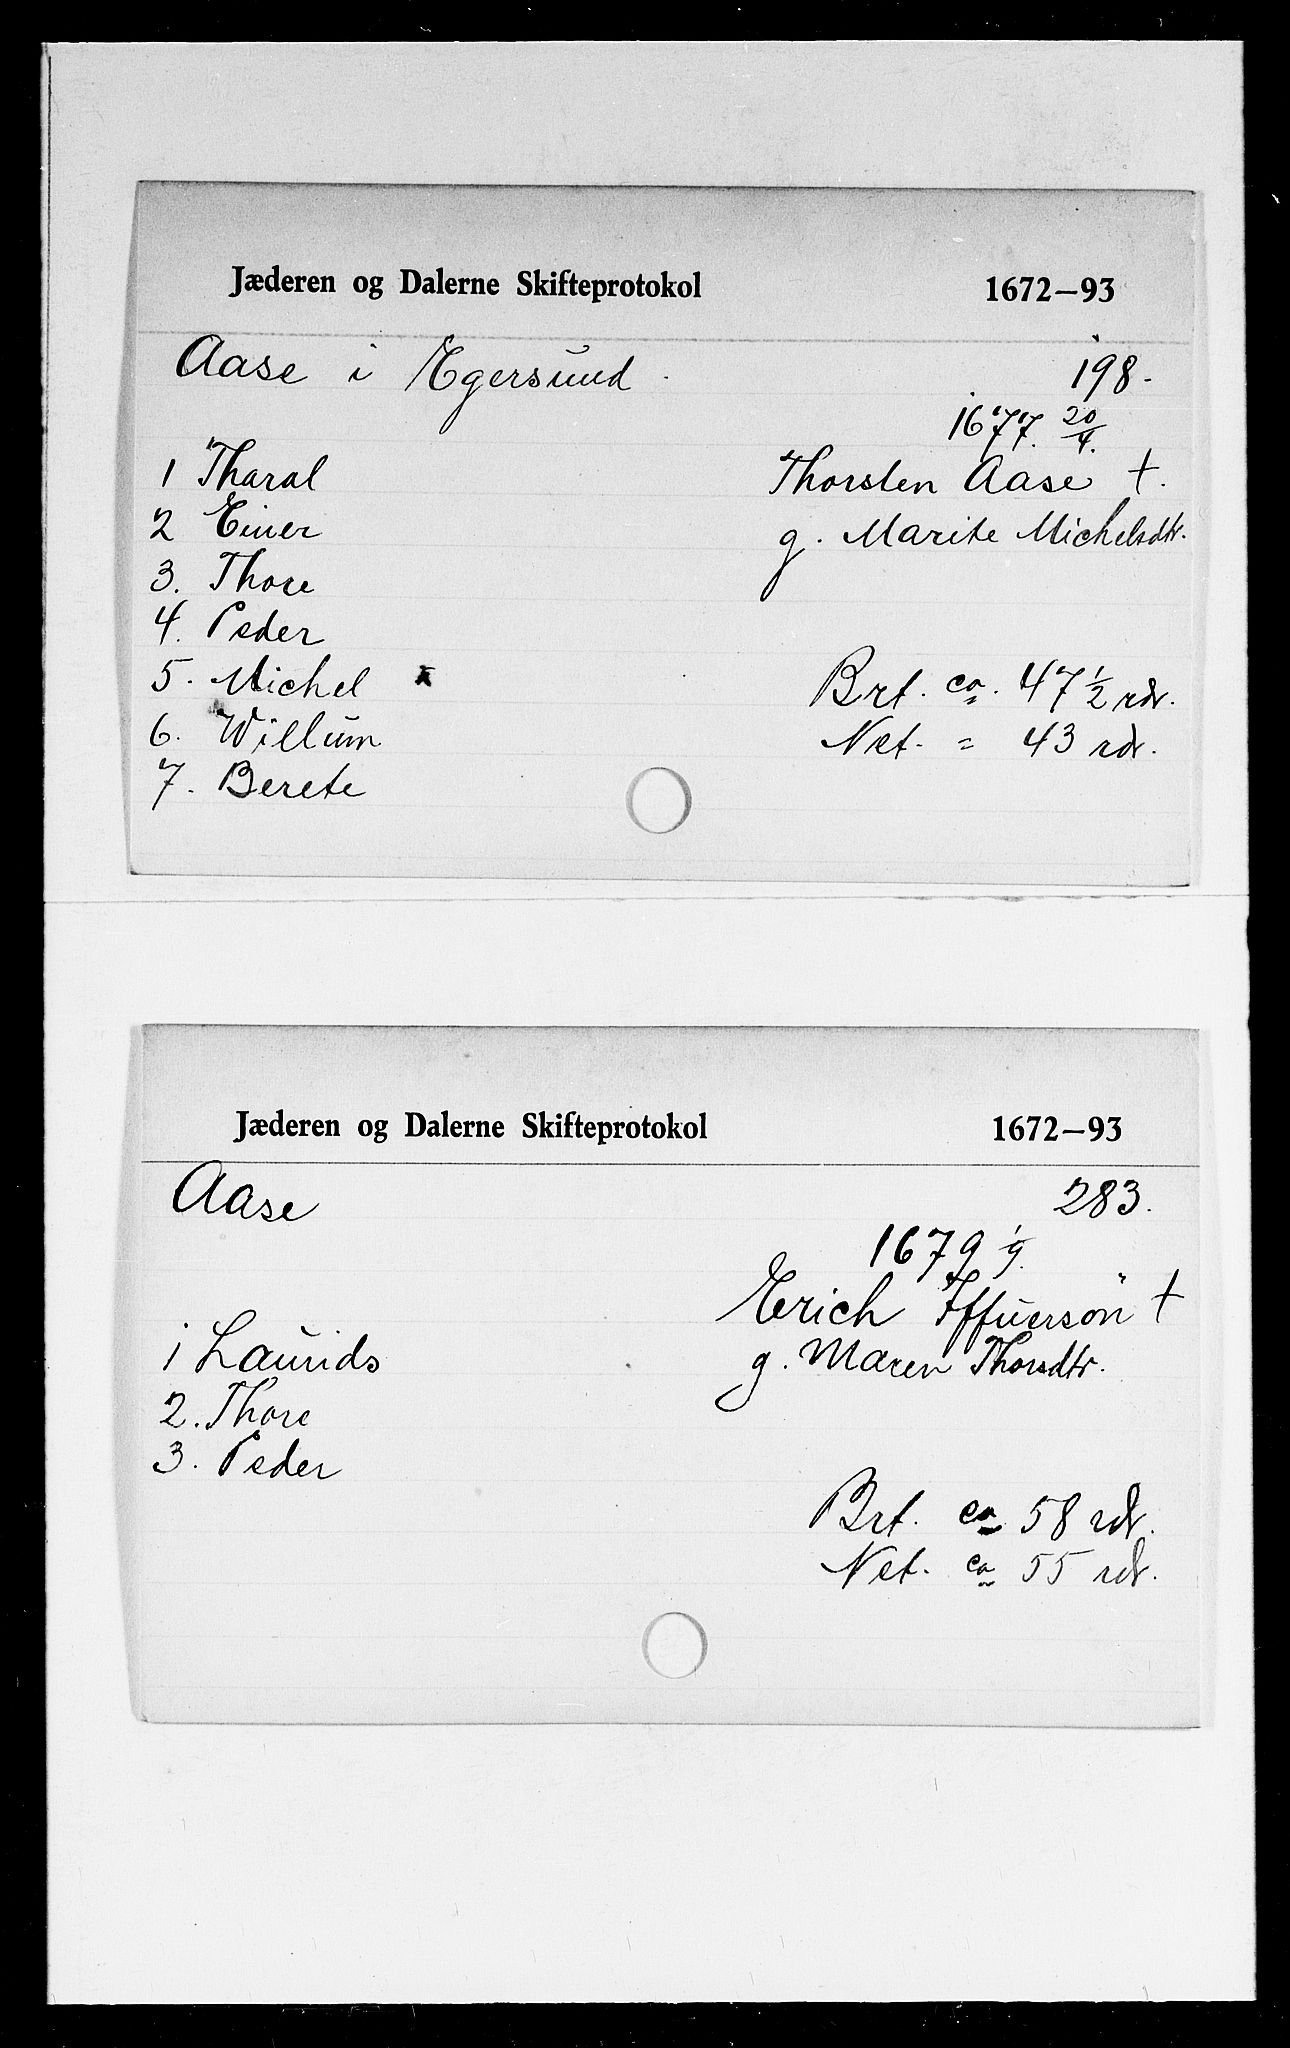 Jæderen og Dalerne Skifteprotokol 1672–93
Aase i Egersund. 198.
1677. 20/4.
1 Tharal Thorsten Aase †.
2 Einer g. Marite Michelsdtr.
3. Thore
4. Peder
5. Michel x Brt. ca. 47 1/2 rdr.
6. Willum Net. = 43 rdr.
7. Berete
Jæderen og Dalerne Skifteprotokol 1672–93
Aase 283.
1679 1/9.
Erich Iffuersøn †
1 Laurids g. Maren Thorsdtr.
2. Thore
3. Peder
Brt. ca 58 rdr.
Net. ca 55 rdr.